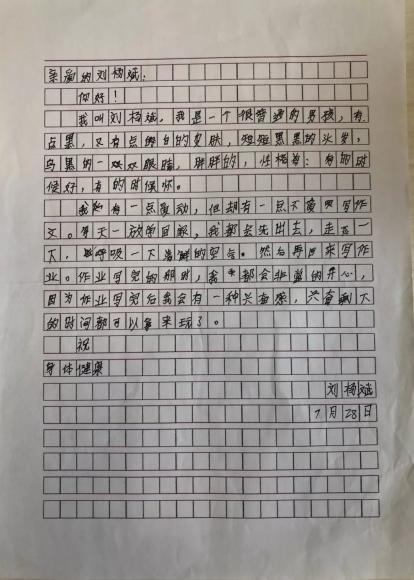 亲爱的刘杨斌：
你好！
我叫刘杨斌，我是一个很普通的男孩，有
点黑，又有点嫩白的皮肤，短短黑黑的头发，
乌黑的一双双眼睛，胖胖的，性格着：有的时
候好，有的时候怀。
我有一点爱动，但却有一点不喜欢写作
文。每天一放学回家，我都会先出去，走一
下，呼吸一下清鲜的空气。然后再回来写作
业。作业写完的那时，我都会非常的开心，
因为作业写完后我会有一种兴奋感，只有剩下
的时间都可以拿来玩了。
祝
身体健康
刘杨斌
7月28日